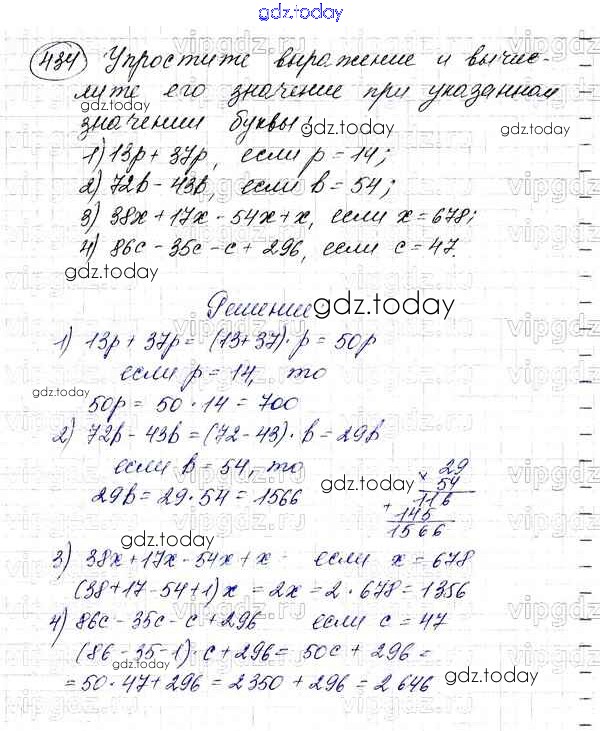 gdz.today
434 Упростите выражение и вычис-
лите его значение при указанном
значении буквы:
1) 13p + 37p, если p = 14;
2) 72b - 43b, если b = 54;
3) 38x + 17x - 54x + x, если x = 678;
4) 86c - 35c - c + 296, если c = 47.
Решение
1) 13p + 37p = (13+37)·p = 50p
если p = 14, то
50p = 50 · 14 = 700
2) 72b - 43b = (72-43)·b = 29b
если b = 54, то
29b = 29·54 = 1566
29
× 54
116
+ 145
1566
3) 38x+17x-54x+x - если x = 678
(38+17-54+1)x = 2x = 2·678 = 1356
4) 86c - 35c - c + 296 если c = 47
(86-35-1)·c + 296 = 50c + 296 =
= 50·47 + 296 = 2350 + 296 = 2646